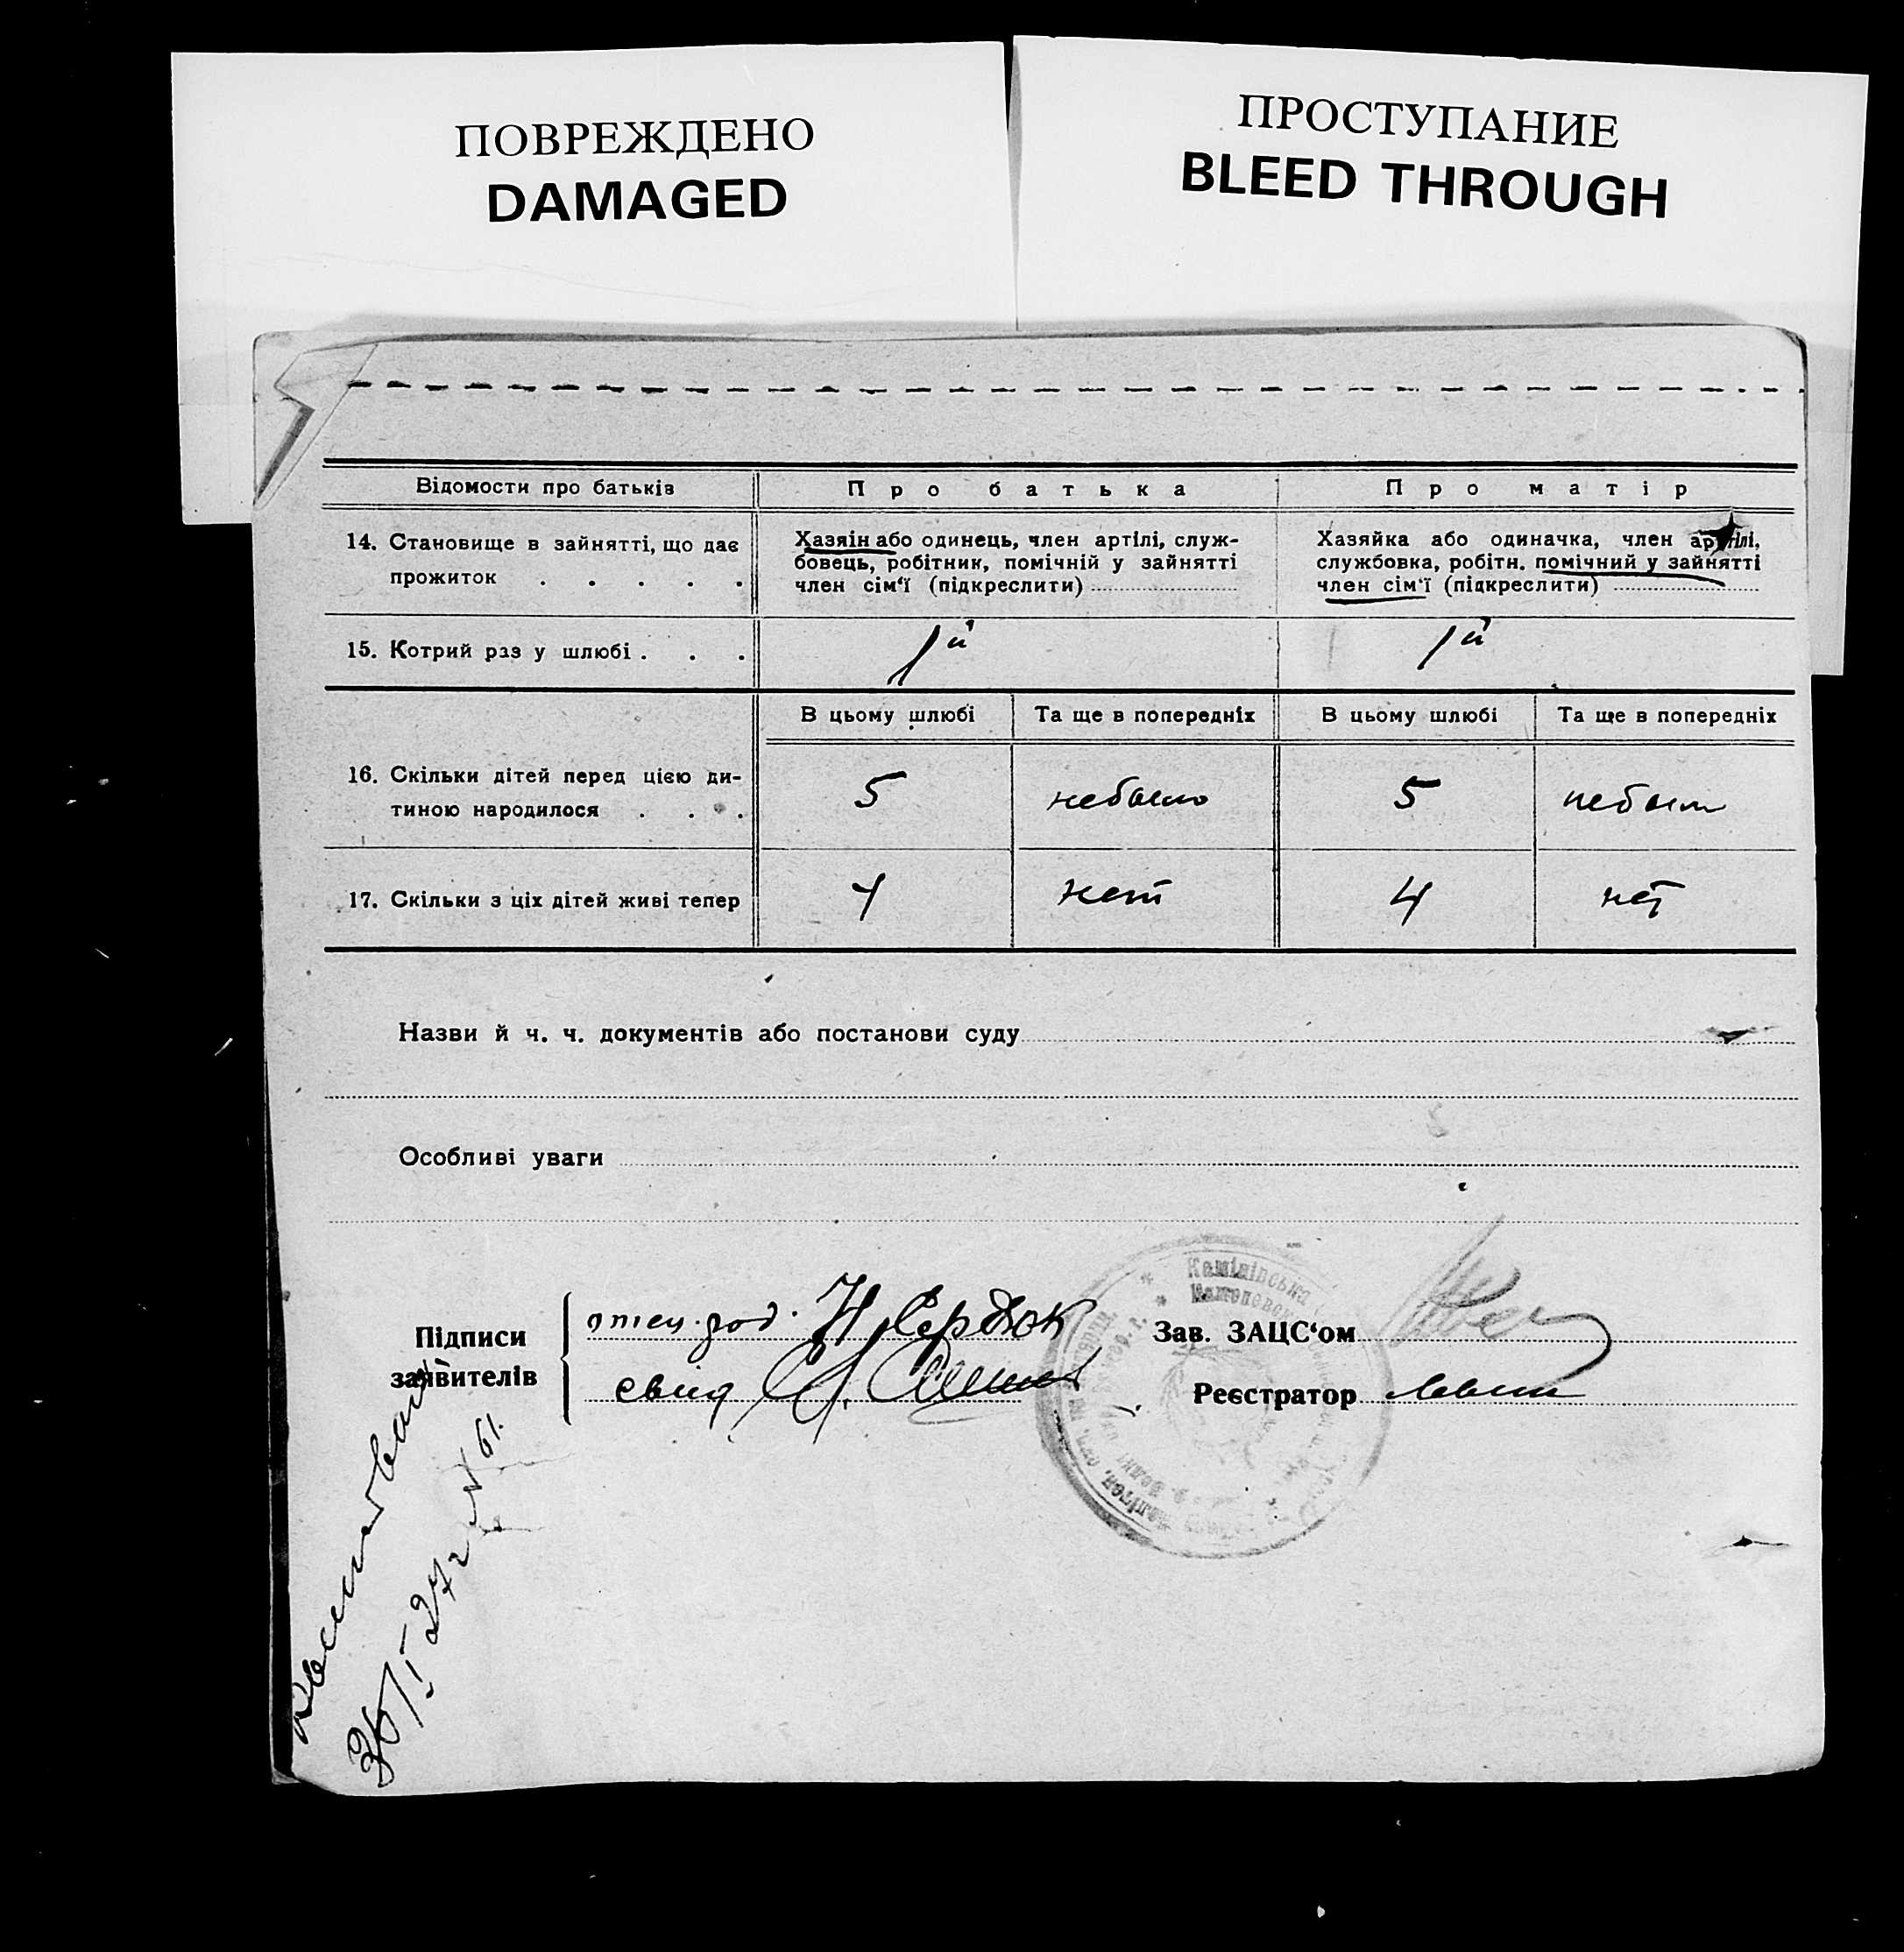 ПОВРЕЖДЕНО
DAMAGED
ПРОСТУПАНИЕ
BLEED THROUGH
Відомости про батьків
Про батька
Про матір
14. Становище в зайнятті, що дає
прожиток . . . . .
Хазяін або одинець, член артілі, служ-
бовець, робітник, помічній у зайнятті
член сім‘ї (підкреслити)
Хазяйка або одиначка, член артілі,
службовка, робітн. помічний у зайнятті
член сім‘ї (підкреслити)
15. Котрий раз у шлюбі . . .
1й
1й
В цьому шлюбі
Та ще в попередніх
В цьому шлюбі
Та ще в попередніх
16. Скільки дітей перед цією ди-
тиною народилося . . .
5
небыло
5
небыло
17. Скільки з ціх дітей живі тепер
4
нет
4
нет
Назви й ч. ч. документів або постанови суду
Особливі уваги
Підписи
заявителів
отец. род. Н. Сердюк
свид
Зав. ЗАЦС‘ом
Реєстратор
27 г № 61.